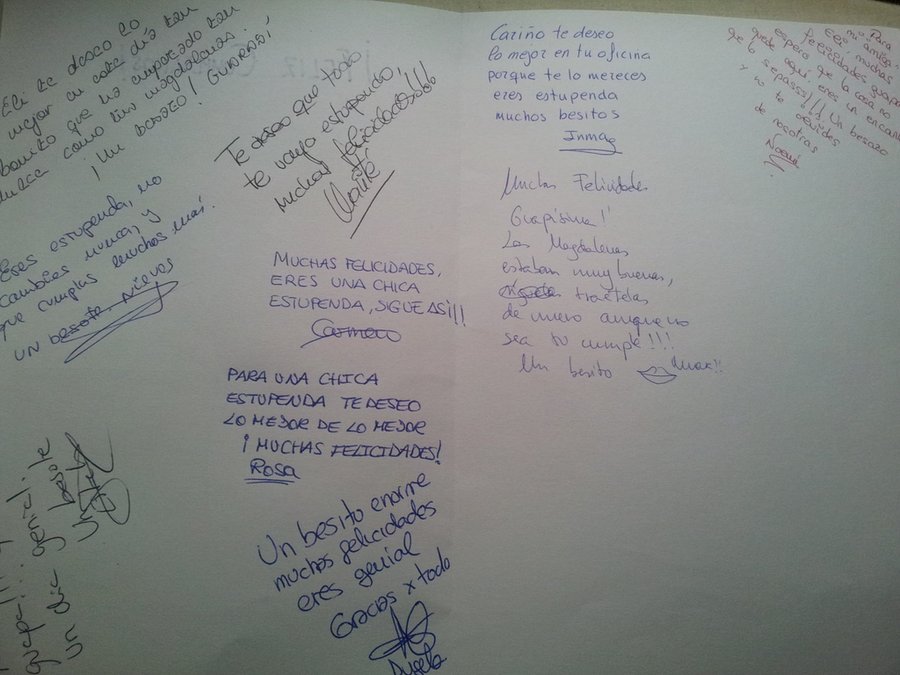 Eli te deseo lo
mejor en este día tan
bonito que ha empezado tan
dulce como tus magdalenas.
¡Un besazo! GUAPAAA!
Eres estupenda, no
cambies nunca, y
que cumplas muchos más.
UN besote. Nieves
guapa!!!
un día genial
besote
Te deseo que todo
te vaya estupendo,
muchas felicidades!!!
Maite
MUCHAS FELICIDADES,
ERES UNA CHICA
ESTUPENDA, SIGUE ASÍ!!!
Carmen
PARA UNA CHICA
ESTUPENDA TE DESEO
LO MEJOR DE LO MEJOR
¡MUCHAS FELICIDADES!
ROSA
Un besito enorme
muchas felicidades
eres genial
Gracias x todo
Ángela
¡FELIZ
Cariño te deseo
lo mejor en tu oficina
porque te lo mereces
eres estupenda
muchos besitos
Inma
Muchas Felicidades
Guapísima!!
Las Magdalenas
estaban muy buenas,
traetelas
de nuevo aunque no
sea tu cumple!!!!
Un besito Muak!!
Para
mi amiga
Eli muchas
felicidades guapa
espero que la cosa no
quede aquí, eres un encanto
que lo sepasss!!! Un besazo
y no te olvides
de nosotras
Noemi